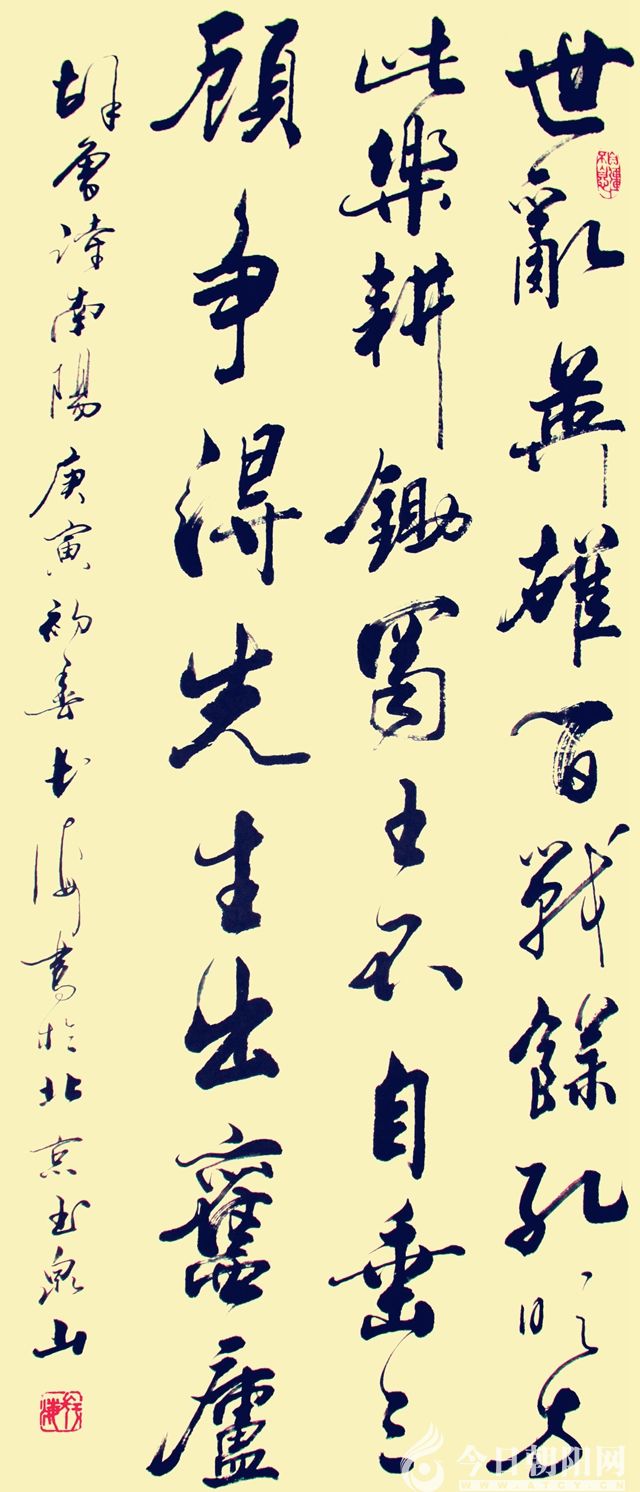 世亂英雄百戰餘孔明方
此樂耕鋤蜀主不自垂三
顧争得先生出舊廬
胡曾詩南陽庚寅初春海書於北京玉泉山
自彊不息
今日朝阳网